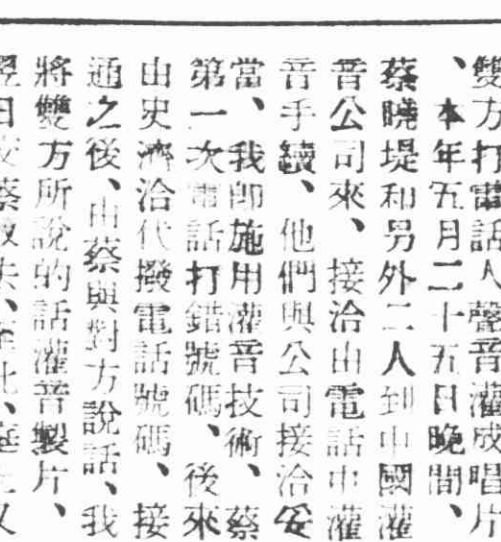 雙方打電話人聲音灌成唱片
、本年五月二十五日晚間、
蔡曉堤和另外二人到中國灌
音公司來、接洽由電話中灌
音手續、他們與公司接洽妥
當、我卽施用灌音技術、蔡
第一次電話打錯號碼、後來
由史濟洽代撥電話號碼、接
通之後、由蔡與對方說話、我
將雙方所說的話灌音製片、
翌日交蔡取去、至此、庭上又